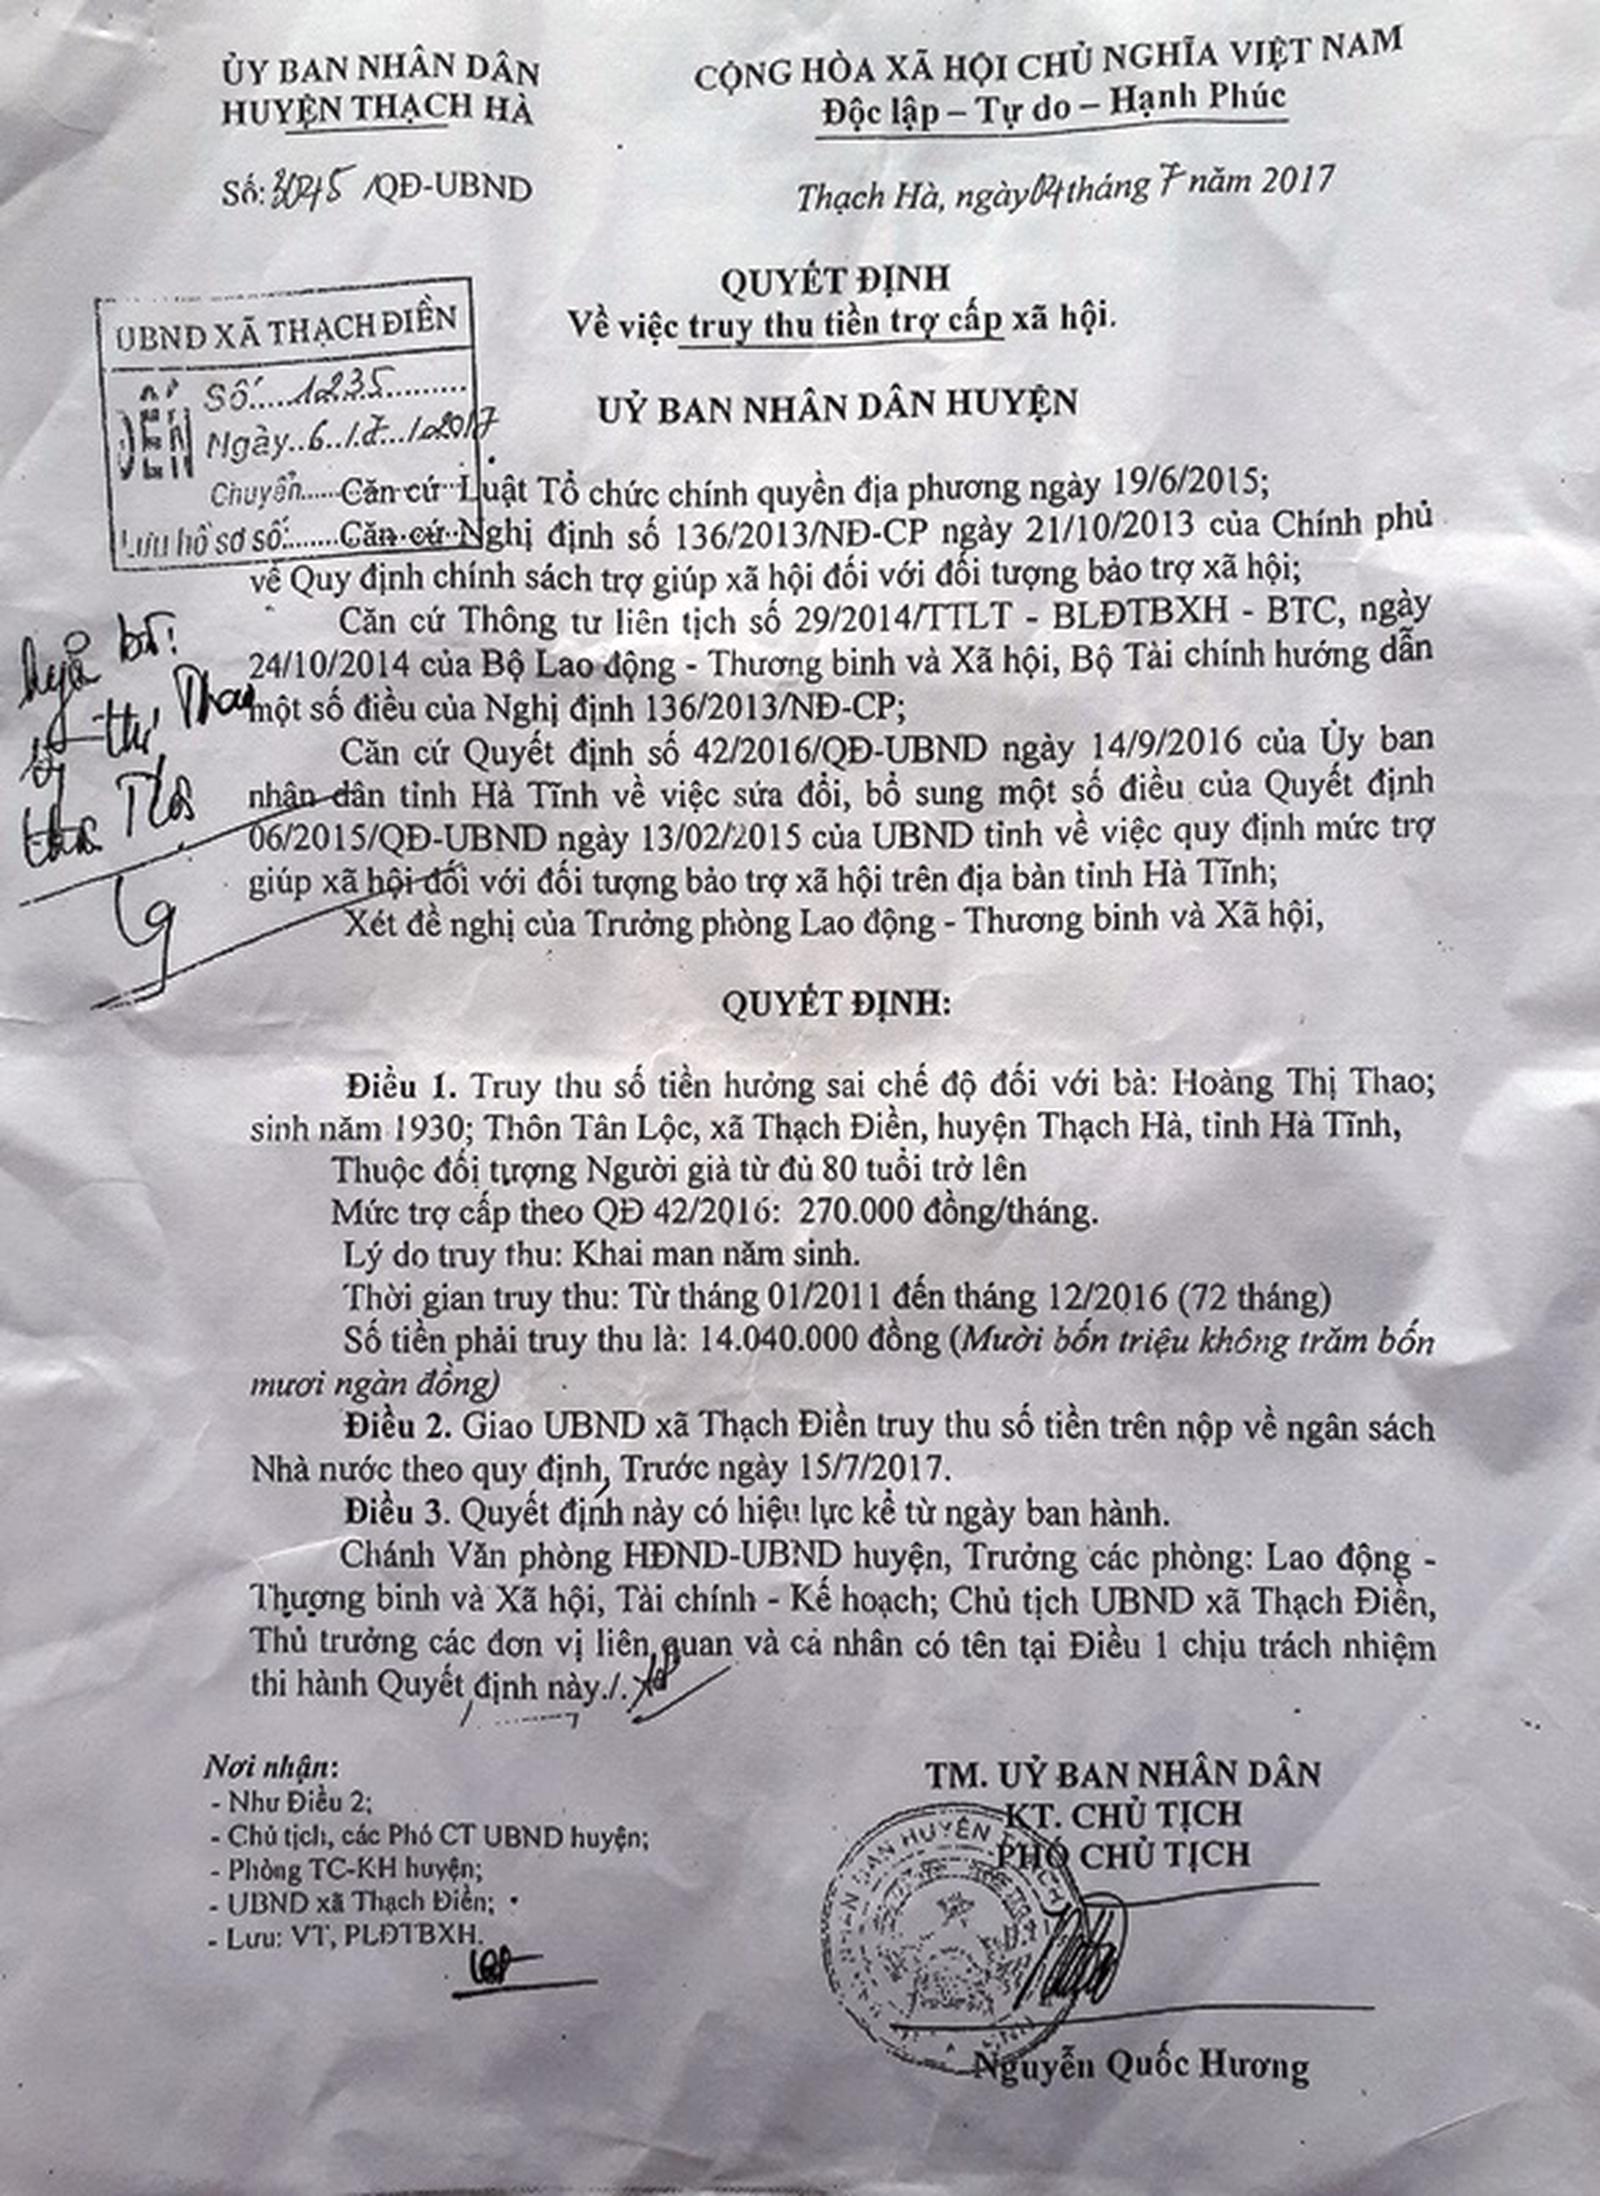 ỦY BAN NHÂN DÂN
HUYỆN THẠCH HÀ
CỘNG HÒA XÃ HỘI CHỦ NGHĨA VIỆT NAM
Độc lập – Tự do – Hạnh Phúc
Số: 3045 /QĐ-UBND
Thạch Hà, ngày 04 tháng 7 năm 2017
QUYẾT ĐỊNH
Về việc truy thu tiền trợ cấp xã hội.
UBND XÃ THẠCH ĐIỀN
ĐẾN
Số.....1235.........
Ngày..6../.7.../.2017
Chuyển.....
Lưu hồ sơ số:......
UỶ BAN NHÂN DÂN HUYỆN
Căn cứ Luật Tổ chức chính quyền địa phương ngày 19/6/2015;
Căn cứ Nghị định số 136/2013/NĐ-CP ngày 21/10/2013 của Chính phủ
về Quy định chính sách trợ giúp xã hội đối với đối tượng bảo trợ xã hội;
Căn cứ Thông tư liên tịch số 29/2014/TTLT - BLĐTBXH - BTC, ngày
24/10/2014 của Bộ Lao động - Thương binh và Xã hội, Bộ Tài chính hướng dẫn
một số điều của Nghị định 136/2013/NĐ-CP;
Căn cứ Quyết định số 42/2016/QĐ-UBND ngày 14/9/2016 của Ủy ban
nhân dân tỉnh Hà Tĩnh về việc sửa đổi, bổ sung một số điều của Quyết định
06/2015/QĐ-UBND ngày 13/02/2015 của UBND tỉnh về việc quy định mức trợ
giúp xã hội đối với đối tượng bảo trợ xã hội trên địa bàn tỉnh Hà Tĩnh;
Xét đề nghị của Trưởng phòng Lao động - Thương binh và Xã hội,
QUYẾT ĐỊNH:
Điều 1. Truy thu số tiền hưởng sai chế độ đối với bà: Hoàng Thị Thao;
sinh năm 1930; Thôn Tân Lộc, xã Thạch Điền, huyện Thạch Hà, tỉnh Hà Tĩnh,
Thuộc đối tượng Người già từ đủ 80 tuổi trở lên
Mức trợ cấp theo QĐ 42/2016: 270.000 đồng/tháng.
Lý do truy thu: Khai man năm sinh.
Thời gian truy thu: Từ tháng 01/2011 đến tháng 12/2016 (72 tháng)
Số tiền phải truy thu là: 14.040.000 đồng (Mười bốn triệu không trăm bốn
mươi ngàn đồng)
Điều 2. Giao UBND xã Thạch Điền truy thu số tiền trên nộp về ngân sách
Nhà nước theo quy định, Trước ngày 15/7/2017.
Điều 3. Quyết định này có hiệu lực kể từ ngày ban hành.
Chánh Văn phòng HĐND-UBND huyện, Trưởng các phòng: Lao động -
Thương binh và Xã hội, Tài chính - Kế hoạch; Chủ tịch UBND xã Thạch Điền,
Thủ trưởng các đơn vị liên quan và cá nhân có tên tại Điều 1 chịu trách nhiệm
thi hành Quyết định này./.
Nơi nhận:
- Như Điều 2;
- Chủ tịch, các Phó CT UBND huyện;
- Phòng TC-KH huyện;
- UBND xã Thạch Điền;
- Lưu: VT, PLĐTBXH.
TM. UỶ BAN NHÂN DÂN
KT. CHỦ TỊCH
PHÓ CHỦ TỊCH
Nguyễn Quốc Hương